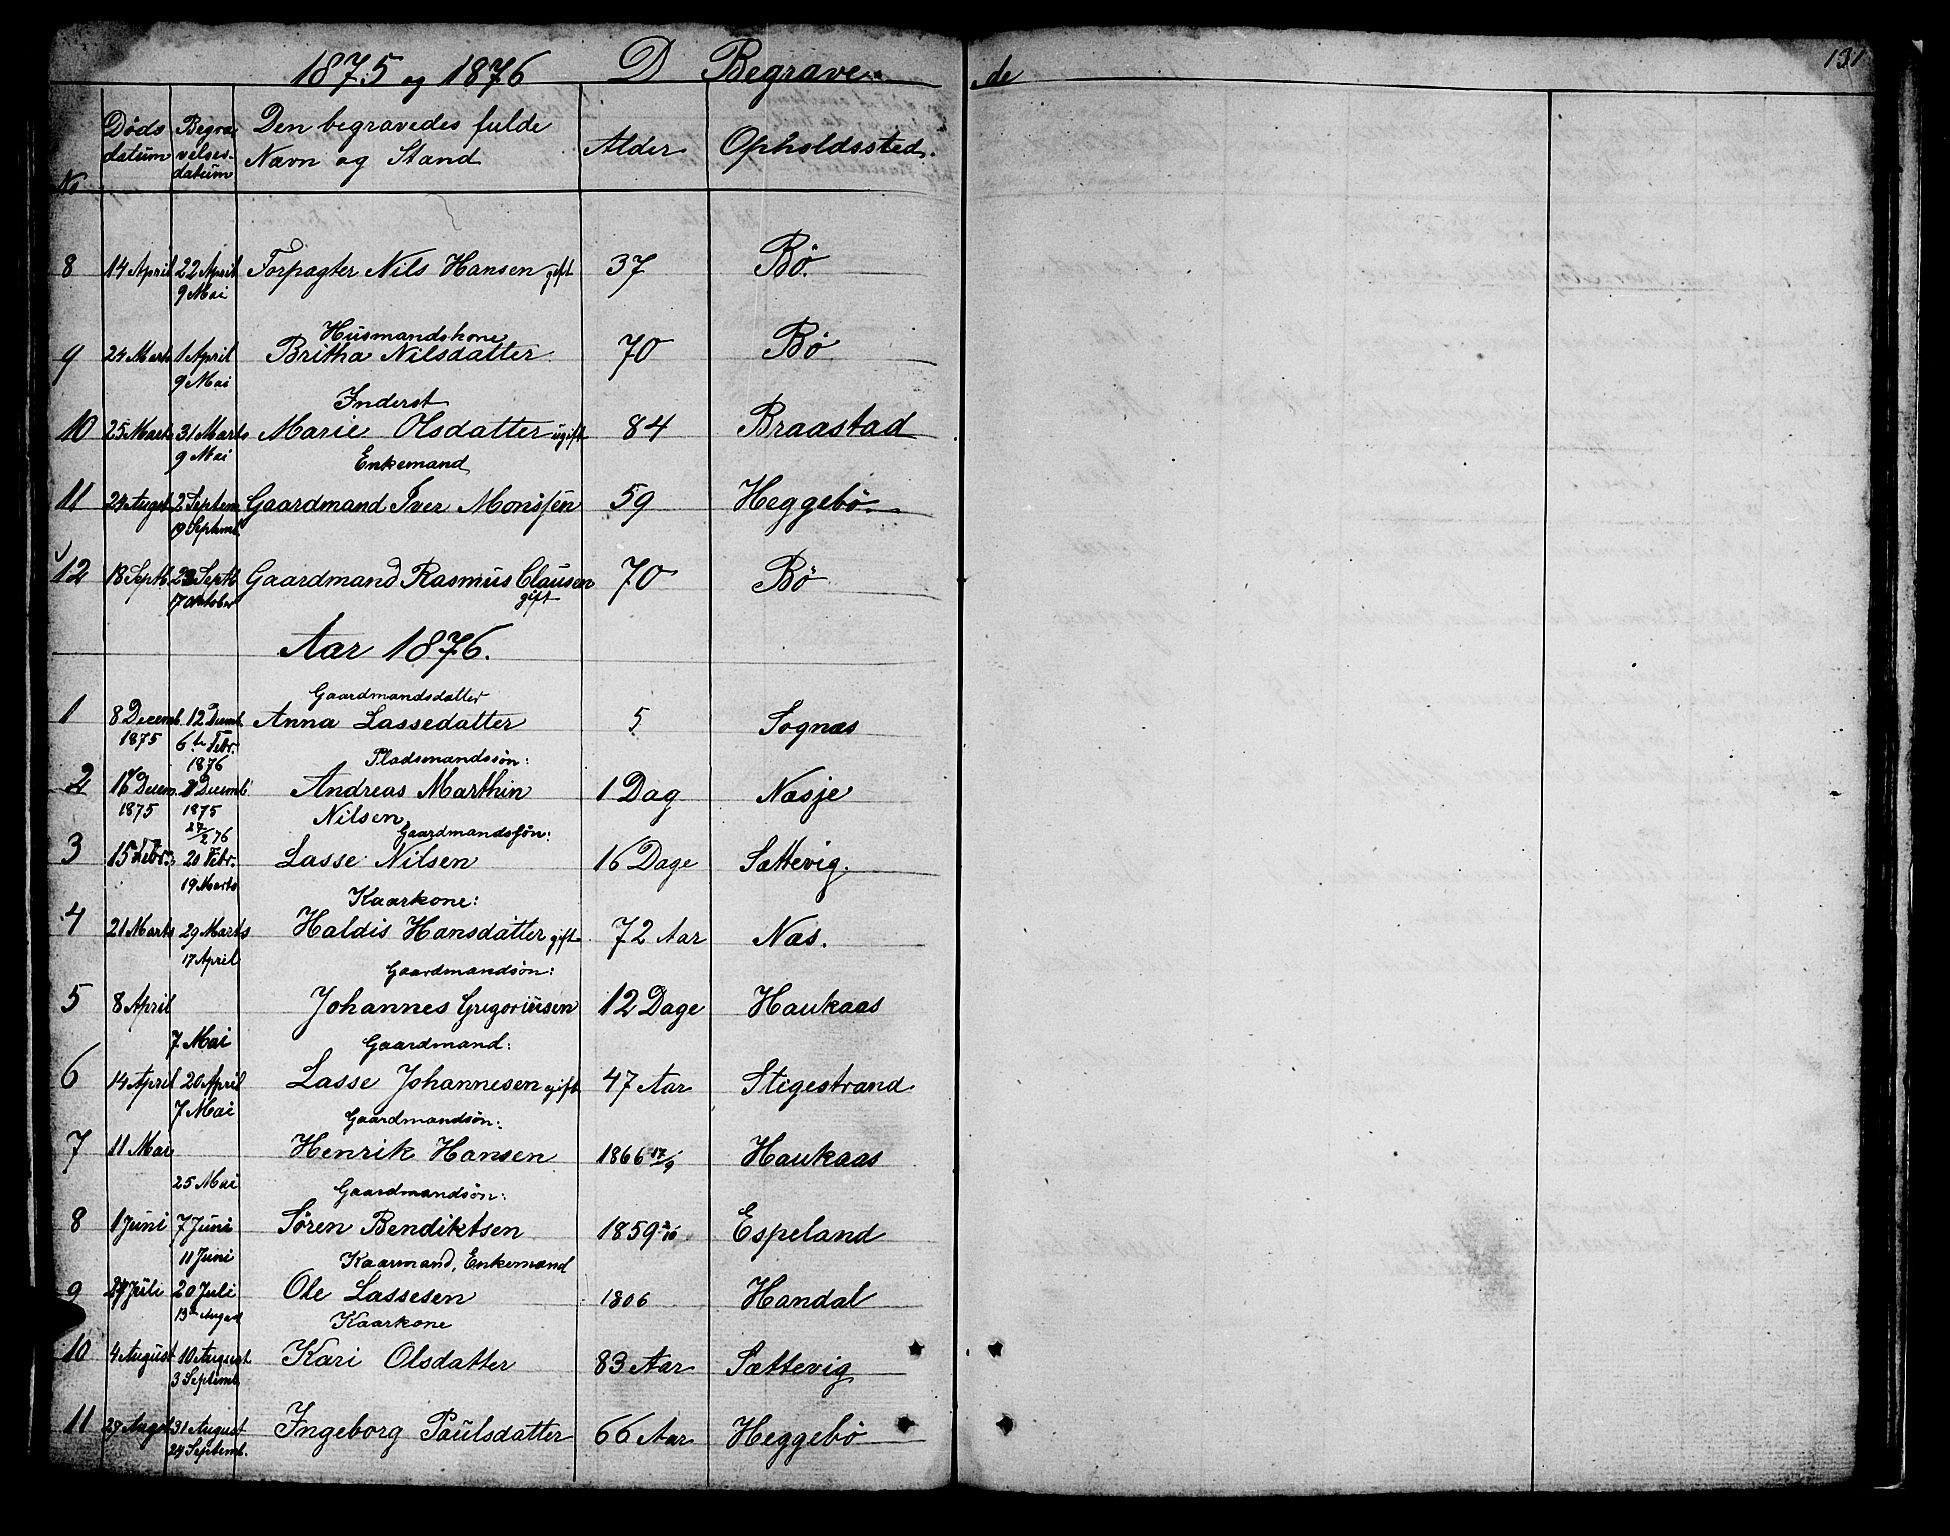 1875 og 1876 D Begrave
de 131
No Dødsdatum Begravelsesdatum Den begravedes fulde Navn og Stand Alder Opholdssted.
8 14 April 22 April Forpagter Nils Hansen gift 37 Bø
9 Mai
Husmandskone
9 24 Marts 1 April Britha Nilsdatter 70 Bø
9 Mai
Inderst
10 25 Marts 31 Marts Marie Olsdatter ugift 84 Braastad
9 Mai
Enkemand
11 24 August 2 Septem Gaardmand Iver Monssen 59 Heggebø
19 Septemb
12 18 Septb 23 Septb Gaardmand Rasmus Clausen 70 Bø
17 Oktober gift
Aar 1876.
Gaardmandsdatter
1 8 Decemb. 12 Decmb Anna Lassedatter 5 Sognæs
1875 6te Febr.
1876
Pladsmandssøn:
2 16 Decem. Decemb Andreas Marthin 1 Dag Næsje
1875 1875 Nilsen
27/2 76
Gaardmandssøn:
3 15 Febr. 20 Febr. Lasse Nilsen 16 Dage Sættevig.
19 Marts
Kaarkone:
4 21 Marts 29 Marts Haldis Hansdatter gift 72 Aar Næs.
17 April
Gaardmandsøn:
5 8 April Johannes Gregoriusen 12 Dage Haukaas
7 Mai
Gaardmand:
6 14 April 20 April Lasse Johannesen gift 47 Aar Stigestrand
7 Mai
Gaardmandsøn:
7 11 Mai Henrik Hansen 1866 17/9 Haukaas
25 Mai
Gaardmandsøn:
8 1 Juni 7 Juni Søren Bendiktsen 1859 Espeland
11 Juni
Kaarmand, Enkemand
9 Juli 20 Juli Ole Lassesen 1806 Handal
13de August
Kaarkone
10 4 August 10 August Kari Olsdatter 83 Aar Sættevig
3 Septemb
11 August 31 August Ingeborg Paulsdatter 66 Aar Heggebø
24 Septemb.